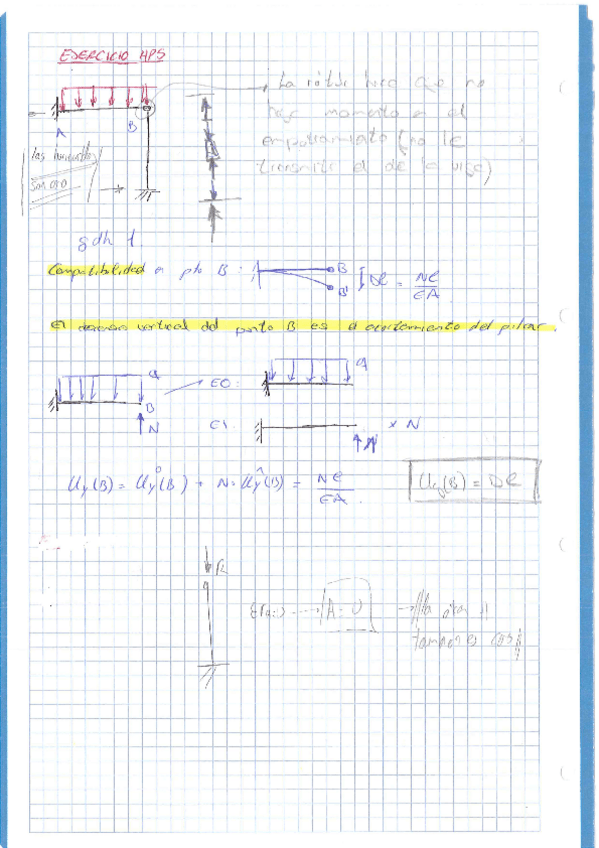 EJERCICIO AP5
¡La rótula hace que no
haya momento en el
empotramiento (no le
transmite el de la viga)
A
B
las horizontales
son cero
gdh 1.
Compatibilidad en pto B:
B
B'
Dl = Nl / EA
El descenso vertical del punto B es el acortamiento del pilar.
q
B
N
E0:
q
E1:
N
x N
Uy(B) = Uy⁰(B) + N·Uy¹(B) = Nl / EA.
Uy(B) = Dl
A = 0
tampoco es